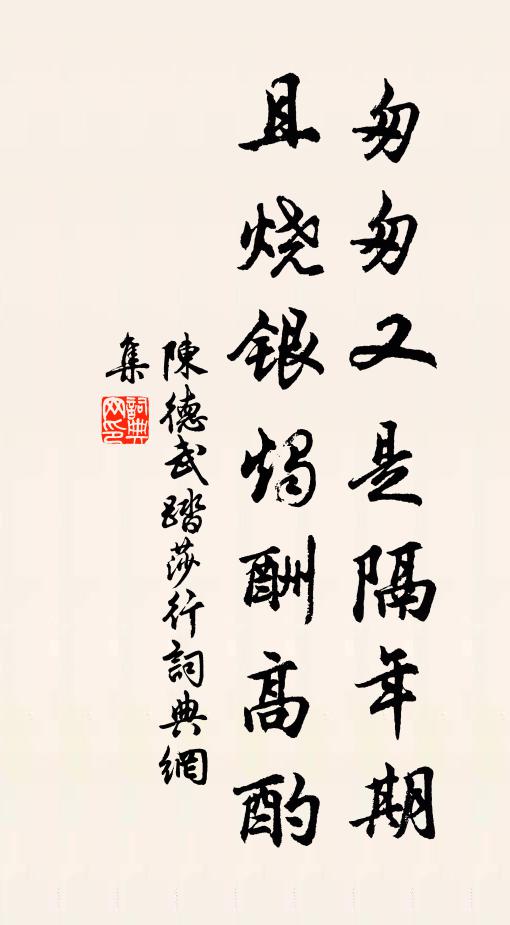 匆匆又是隔年期
且烧银烛酬高酌
陳德武踏莎行詞典網
集
詞典
网印